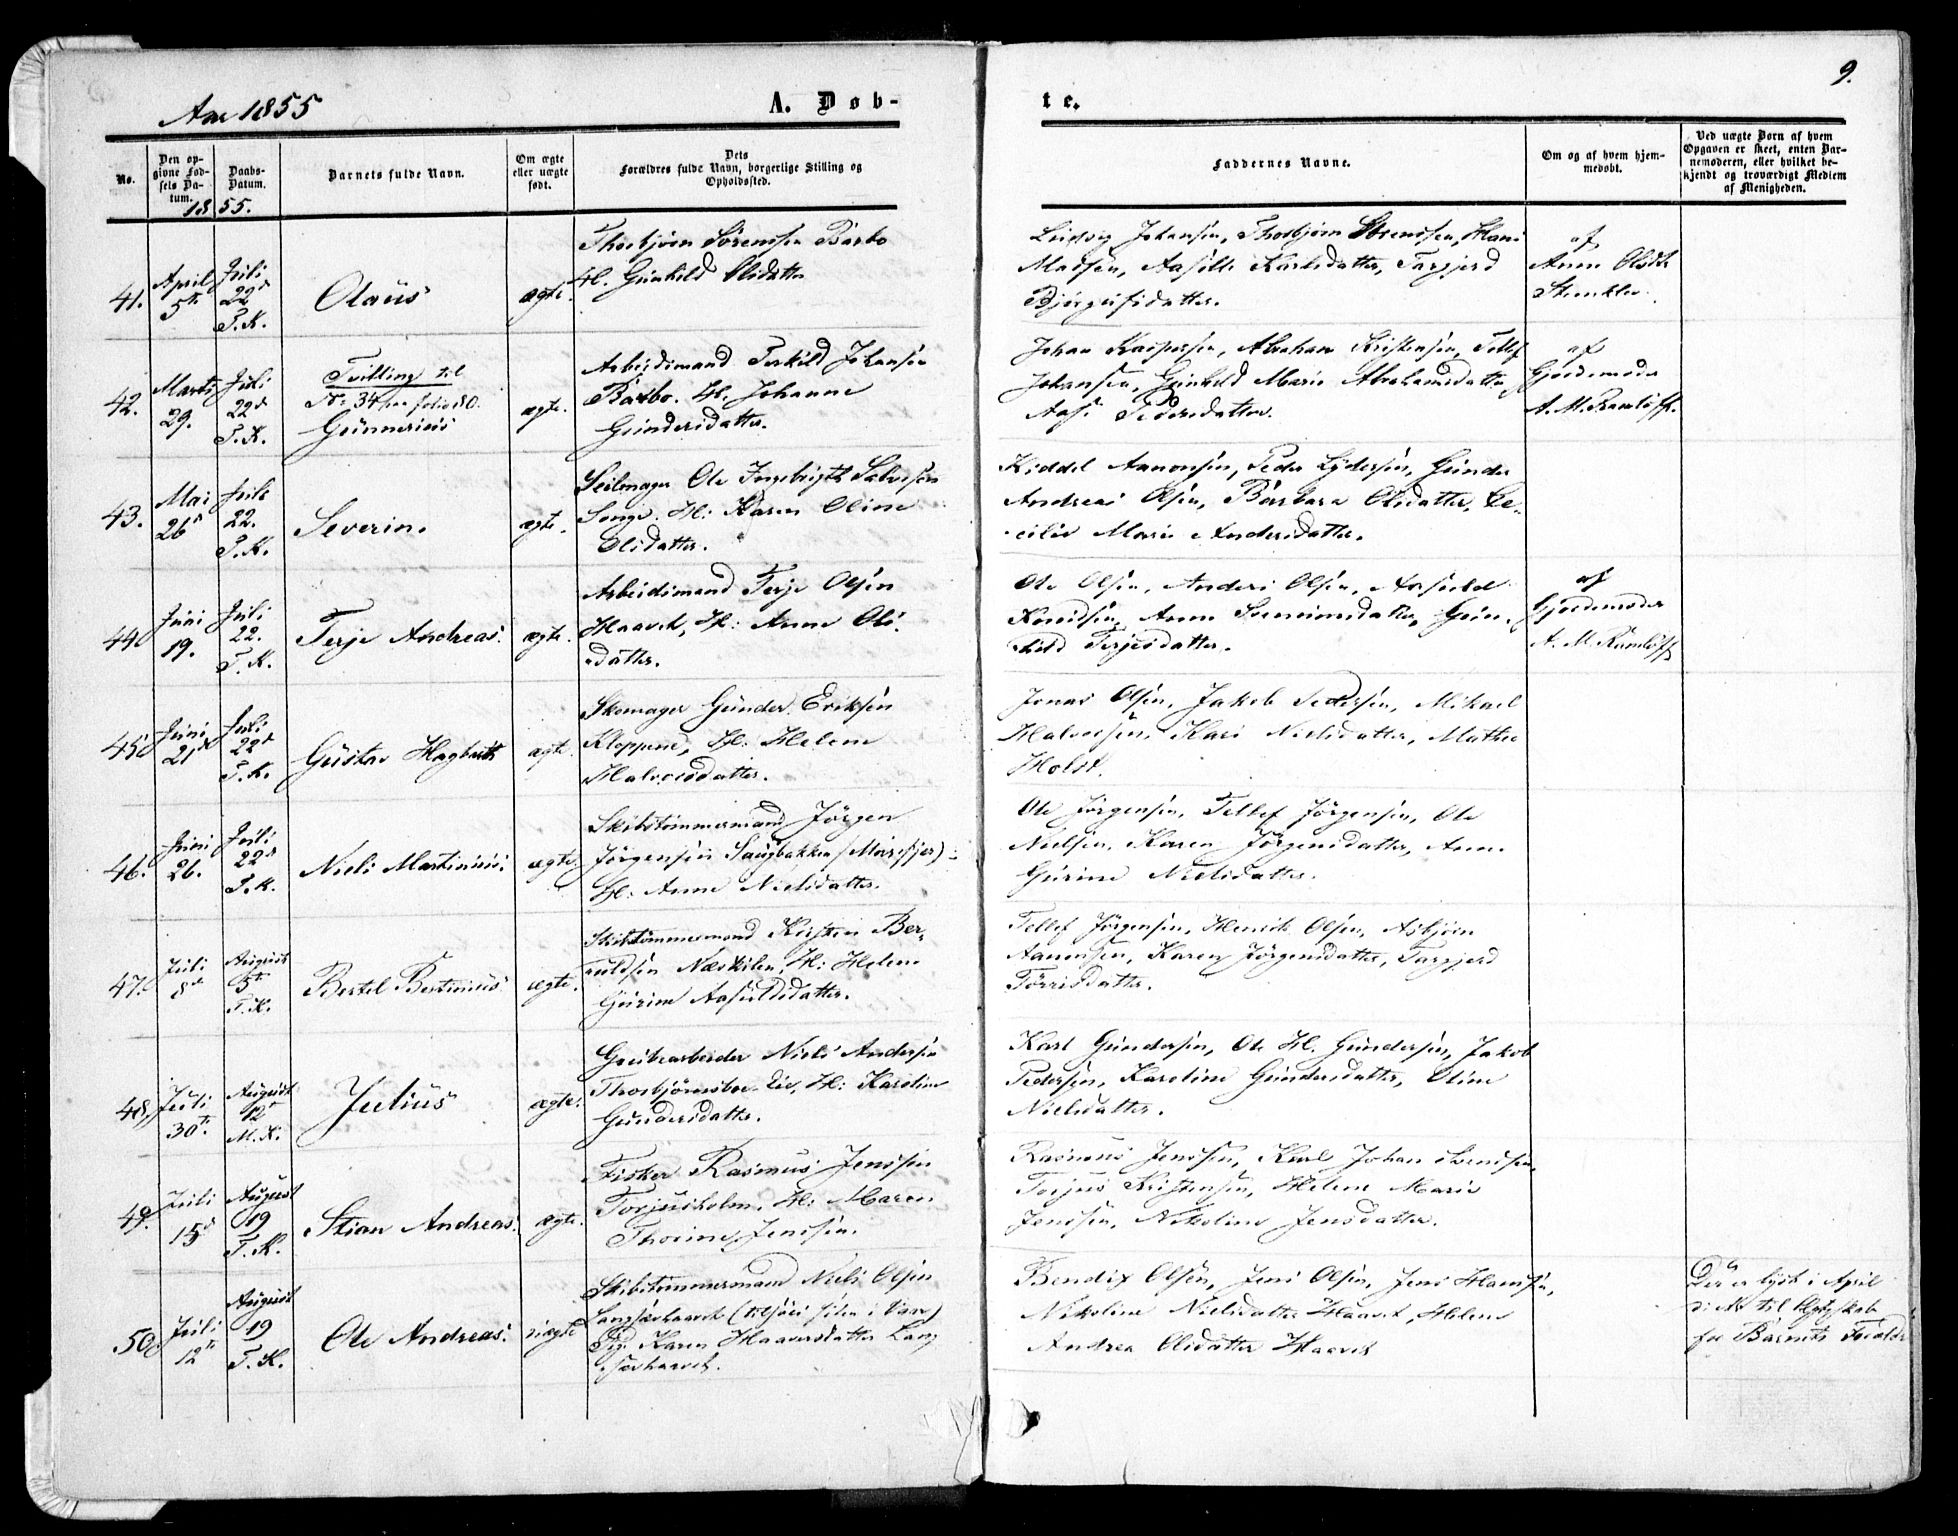 Aar 1855
A. Døb-
te.
9.
No.
Den op-
givne Fød-
sels Da-
tum.
Daabs-
Datum.
Barnets fulde Navn.
Om ægte
eller uægte
født.
Dets
Forældres fulde Navn, borgerlige Stilling og
Opholdssted.
Faddernes Navne.
Om og af hvem hjem-
medøbt.
Ved uægte Børn af hvem
Opgaven er skeet, enten Bar-
nemoderen, eller hvilket be-
kjendt og troværdigt Medlem
af Menigheden.
1855.
41.
April
5te
Juli
22d
T.K.
Olaus
ægte.
Thorbjørn Sørensen Barbo
H. Gunhild Olsdatter
Ludvig Johansen, Thorbjørn Sørensen, Hans
Madsen, Karlsdatter, Targjerd
Bjørgufsdatter.
af
Anne Olsdtr
42.
Marts
29.
Juli
22d
T.K.
Tvilling til
No 34 paa folio 80.
Gunnerius
ægte.
Arbeidsmand Terkild Johansen
Barbo. H. Johanne
Gundersdatter.
Johan Kaspersen, Abraham Kristensen, Tellef
Johansen, Gunhild Marie Abrahamsdatter
Aase Pedersdatter.
af
Gjordemoder
A. M. Ramløff.
43.
Mai
26d
Juli
22.
T.K.
Severin.
ægte.
Seilmager Ole Ingebrigt Salvesen
Songe. H: Karen Oline
Olsdatter.
Kiddel Aanonsen, Peder Lydersen, Gunder
Andreas Olsen, Barbara Olsdatter, Ce-
cilie Marie Andersdatter.
44.
Juni
19.
Juli
22.
T.K.
Terje Andreas.
ægte.
Arbeidsmand Terje Olsen
Haavet, H: Anne Ols-
datter.
Ole Olsen, Anders Olsen, Aasuld
Knudsen, Anne Svenningsdatter, Gun-
hild Terjesdatter.
af
Gjordemoder
A. M. Ramløff
45.
Juni
21d
Juli
22d
T.K.
Gustav Hagbarth
ægte.
Skomager Gunder Eriksen
Kloppene, H: Helene
Halvorsdatter.
Jonas Olsen, Jakob Pedersen, Mikael
Halvorsen, Kari Nielsdatter, Mathea
Holst.
46.
Juni
26.
Juli
22d
T.K.
Niels Martinius.
ægte.
Skibstømmermand Jørgen
Jørgensen Saugbakken (Marisfjer)
H: Anne Nielsdatter.
Ole Jørgensen, Tellef Jørgensen, Ole
Nielsen, Karen Jørgensdatter, Anne
Gurine Nielsdatter.
47.
Juli
8de
August
5te
T.K.
Bertel Bertinius
ægte.
Skibstømmermand Kirsten Ber-
nuldsen Næskilen, H: Helene
Gurine Aasuldsdatter.
Tellef Jørgensen, Henrik Olsen, Asbjørn
Aanonsen, Karen Jørgensdatter, Targjerd
Tørrisdatter.
48.
Juli
30te.
August
12te
M.K.
Julius
ægte.
Grubearbeider Niels Andersen
Thorbjørnsbo H: Karoline
Gundersdatter.
Karl Gundersen, Ole H. Gundersen, Jakob
Pedersen, Karoline Gundersdatter, Oline
Nielsdatter.
49.
Juli
15d
August
19
T.K.
Stian Andreas.
ægte.
Fisker Rasmus Jenssen
Torjusholm, H: Maren
Thorine Jenssen.
Rasmus Jenssen, Karl Johan Svendsen,
Torjus Kristensen, Helene Marie
Jenssen, Nikoline Jensdatter.
50.
Juli
12te
August
19
T.K.
Ole Andreas.
uægte
Skibstømmermand Niels Olsen
Langsævhaavet
Pig. Karen Haaversdatter Lang
sævhaavet.
Bendix Olsen, Jens Olsen, Jens Hansen,
Nikoline Nielsdatter Haavet, Helene
Andrea Olsdatter Haavet
Der er lyst i April
d: A: til Ægteskab
for Barnets Forældr